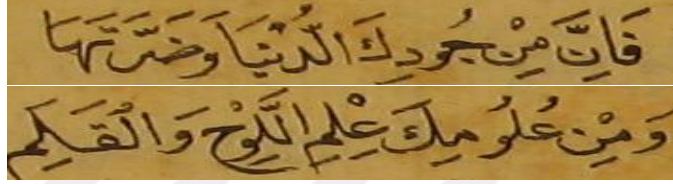 فَاِنَّ مِنْ جُودِكَ الدُّنْيَا وَضَرَّتَهَا
وَمِنْ عُلُومِكَ عِلْمِ اللَّوْحِ وَالْقَلَمِ